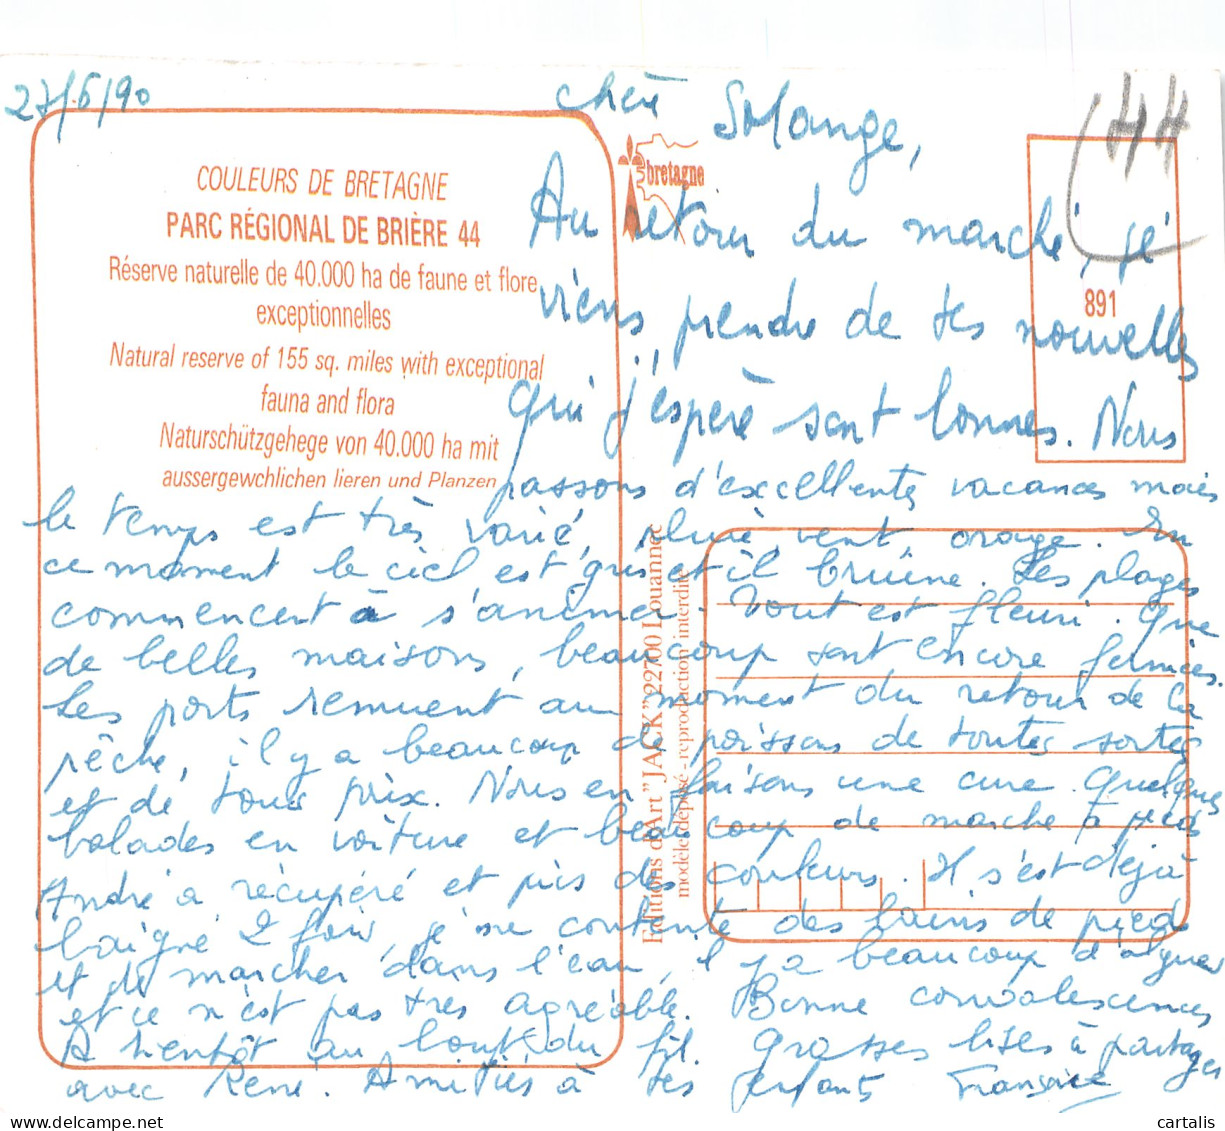 27/6/90
44
COULEURS DE BRETAGNE
PARC RÉGIONAL DE BRIÈRE 44
Réserve naturelle de 40.000 ha de faune et flore
exceptionnelles
Natural reserve of 155 sq. miles with exceptional
fauna and flora
Naturschützgehege von 40.000 ha mit
aussergewchlichen lieren und Planzen
bretagne
891
Editions d'Art "JACK" 22700 Louannec
modèle déposé - reproduction interdite
chère Solange,
Au retour du marché, je
viens prendre de tes nouvelles
qui j'espère sont bonnes. Nous
passons d'excellentes vacances mais
le temps est très varié, pluie, vent, orage. En
ce moment le ciel est gris et il bruine. Les plages
commencent à s'animer. Tout est fleuri. Que
de belles maisons, beaucoup sont encore fermées.
Les ports remuent au moment du retour de la
pêche, il y a beaucoup de poissons de toutes sortes
et de tous prix. Nous en faisons une cure. Quelques
balades en voiture et beaucoup de marche à pieds
André a récupéré et pris des couleurs. Il s'est déjà
baigné 2 fois, je me contente des bains de pieds
et de marcher dans l'eau, il y a beaucoup d'algues
et ce n'est pas très agréable. Bonne convalescence
A bientôt au bout du fil. Grosses bises à partager
avec René. Amitiés à tes enfants Françoise
cartalis